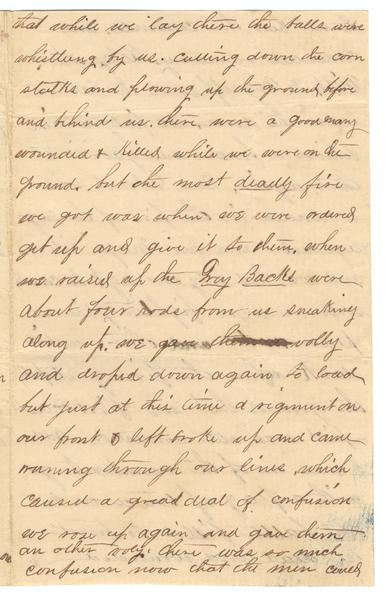 that while we lay there the balls were
whistlung by us. cutting down the corn
stalks and plowing up the ground before
and behind us. there were a good many
wounded & killed while we were on the
ground. but the most deadly fire
we got was when we were ordered
get up and give it to them. when
we raised up the Grey Backs were
about four rods from us sneaking
along up. we gave them volly
and dropid down again to load
but just at this time a rigiment on
our front & left broke up and came
runing through our lines which
caused a great deal of confusion
we rose up again and gave them
an other voly. there was so much
confusion now that the men could